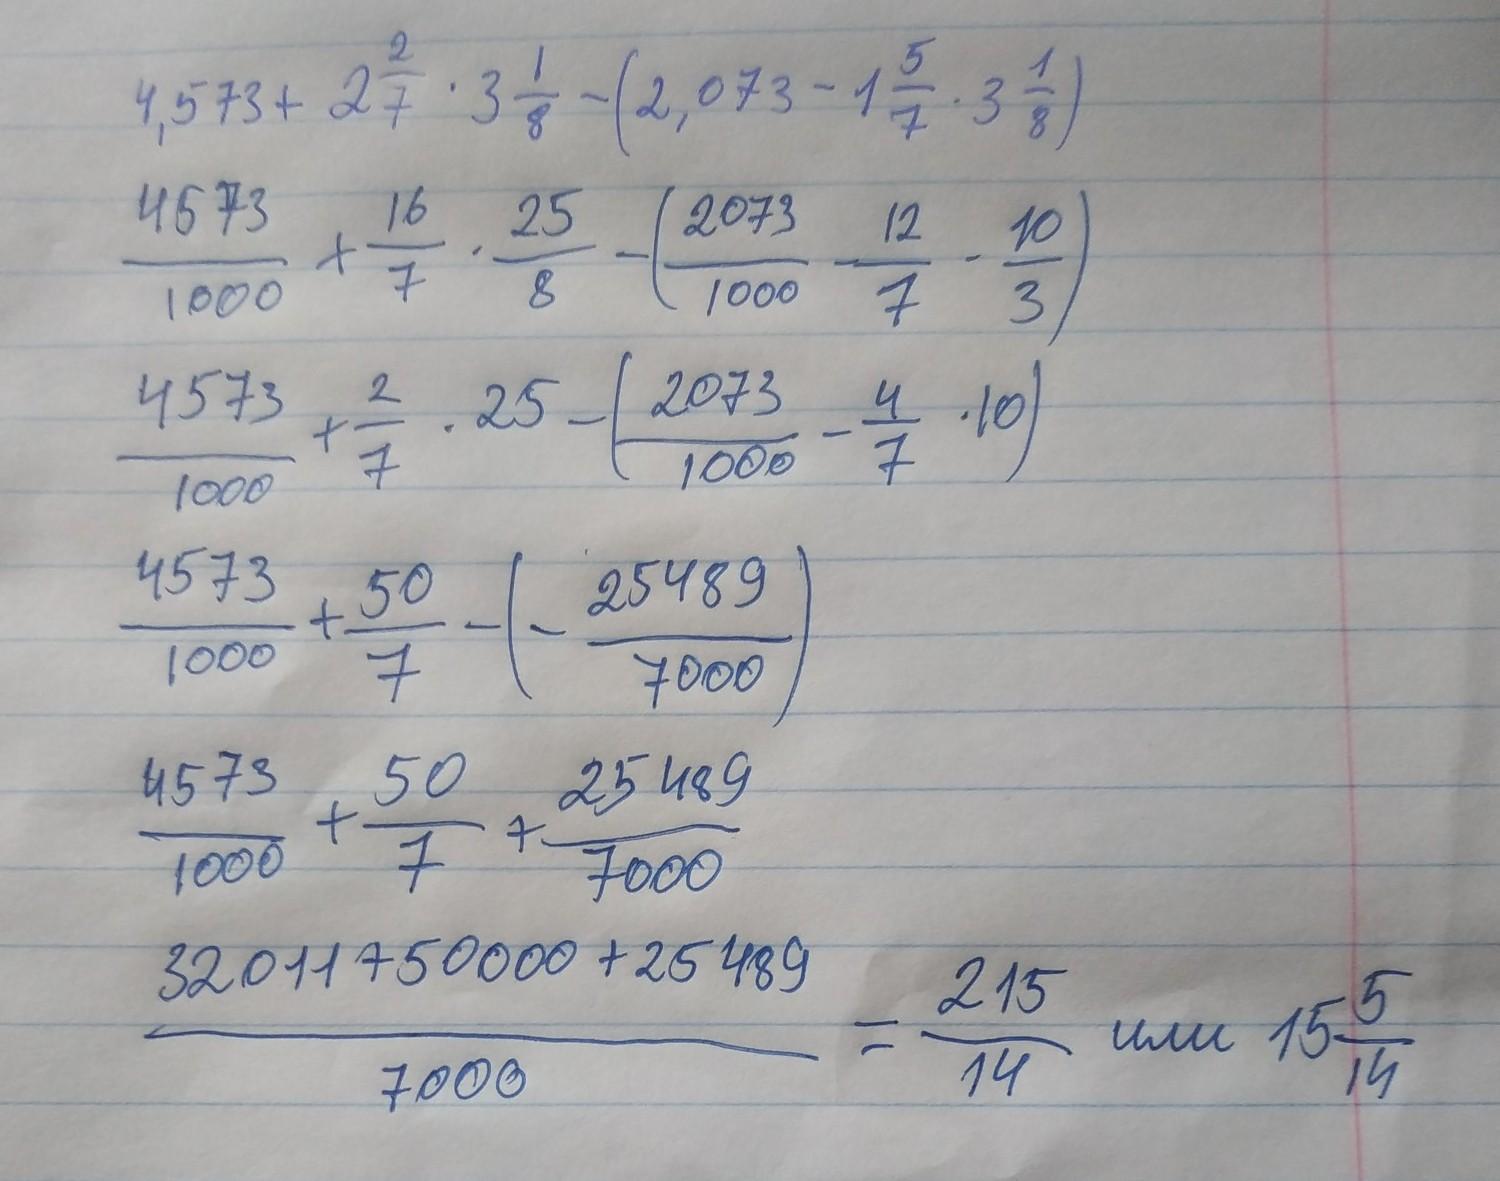 4,573 + 2 2/7 · 3 1/8 - (2,073 - 1 5/7 · 3 1/8)
4573/1000 + 16/7 · 25/8 - (2073/1000 - 12/7 · 10/3)
4573/1000 + 2/7 · 25 - (2073/1000 - 4/7 · 10)
4573/1000 + 50/7 - (- 25489/7000)
4573/1000 + 50/7 + 25489/7000
32011+50000+25489/7000 = 215/14 или 15 5/14